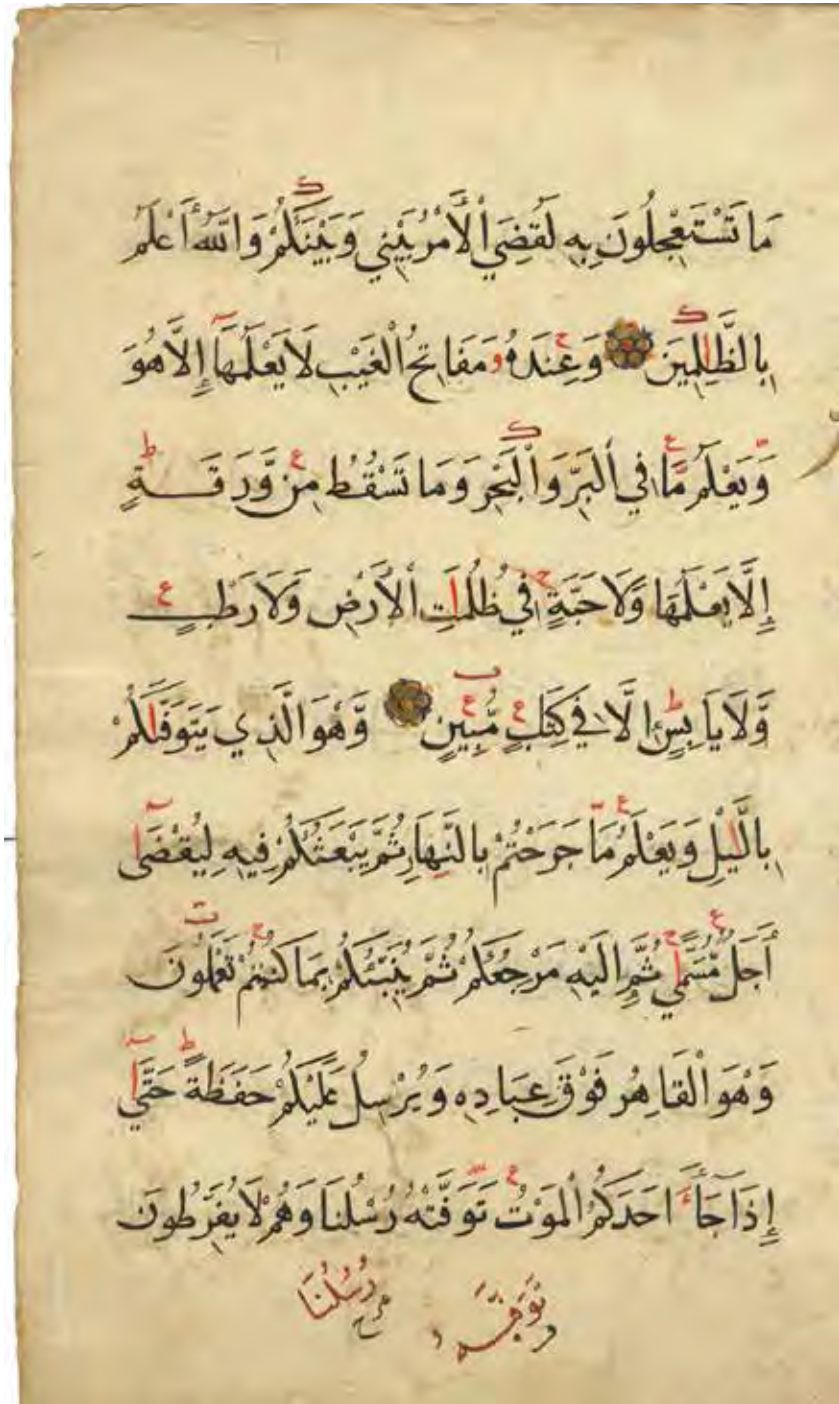 مَا تَسْتَعْجِلُونَ بِهِ لَقُضِيَ الْأَمْرُ بَيْنِي وَبَيْنَكُمْ وَاللَّهُ أَعْلَمُ
بِالظَّٰلِمِينَ وَعِنْدَهُ وَ مَفَاتِحُ الْغَيْبِ لَا يَعْلَمُهَآ إِلَّا هُوَ
وَّيَعْلَمُ مَّا فِي الْبَرِّ وَالْبَحْرِ وَمَا تَسْقُطُ مِنْ وَّرَقَةٍ
إِلَّا يَعْلَمُهَا وَلَا حَبَّةٍ فِي ظُلُمَٰتِ الْأَرْضِ وَلَا رَطْبٍ
وَّلَا يَابِسٍ إِلَّا فِي كِتَابٍ مُّبِينٍ وَّهْوَ الَّذِي يَتَوَفَّىٰكُمْ
بِالَّيْلِ وَيَعْلَمُ مَا جَرَحْتُمْ بِالنَّهَارِ ثُمَّ يَبْعَثُكُمْ فِيهِ لِيُقْضَىٰٓ
أَجَلٌ مُّسَمًّى ثُمَّ إِلَيْهِ مَرْجِعُكُمْ ثُمَّ يُنَبِّئُكُمْ بِمَا كُنْتُمْ تَعْمَلُونَ
وَهْوَ الْقَاهِرُ فَوْقَ عِبَادِهِ وَيُرْسِلُ عَلَيْكُمْ حَفَظَةً حَتَّىٰٓ
إِذَا جَآءَ احَدَكُمُ الْمَوْتُ تَوَفَّتْهُ رُسُلُنَا وَهُمْ لَا يُفَرِّطُونَ
رُسُلُنَا